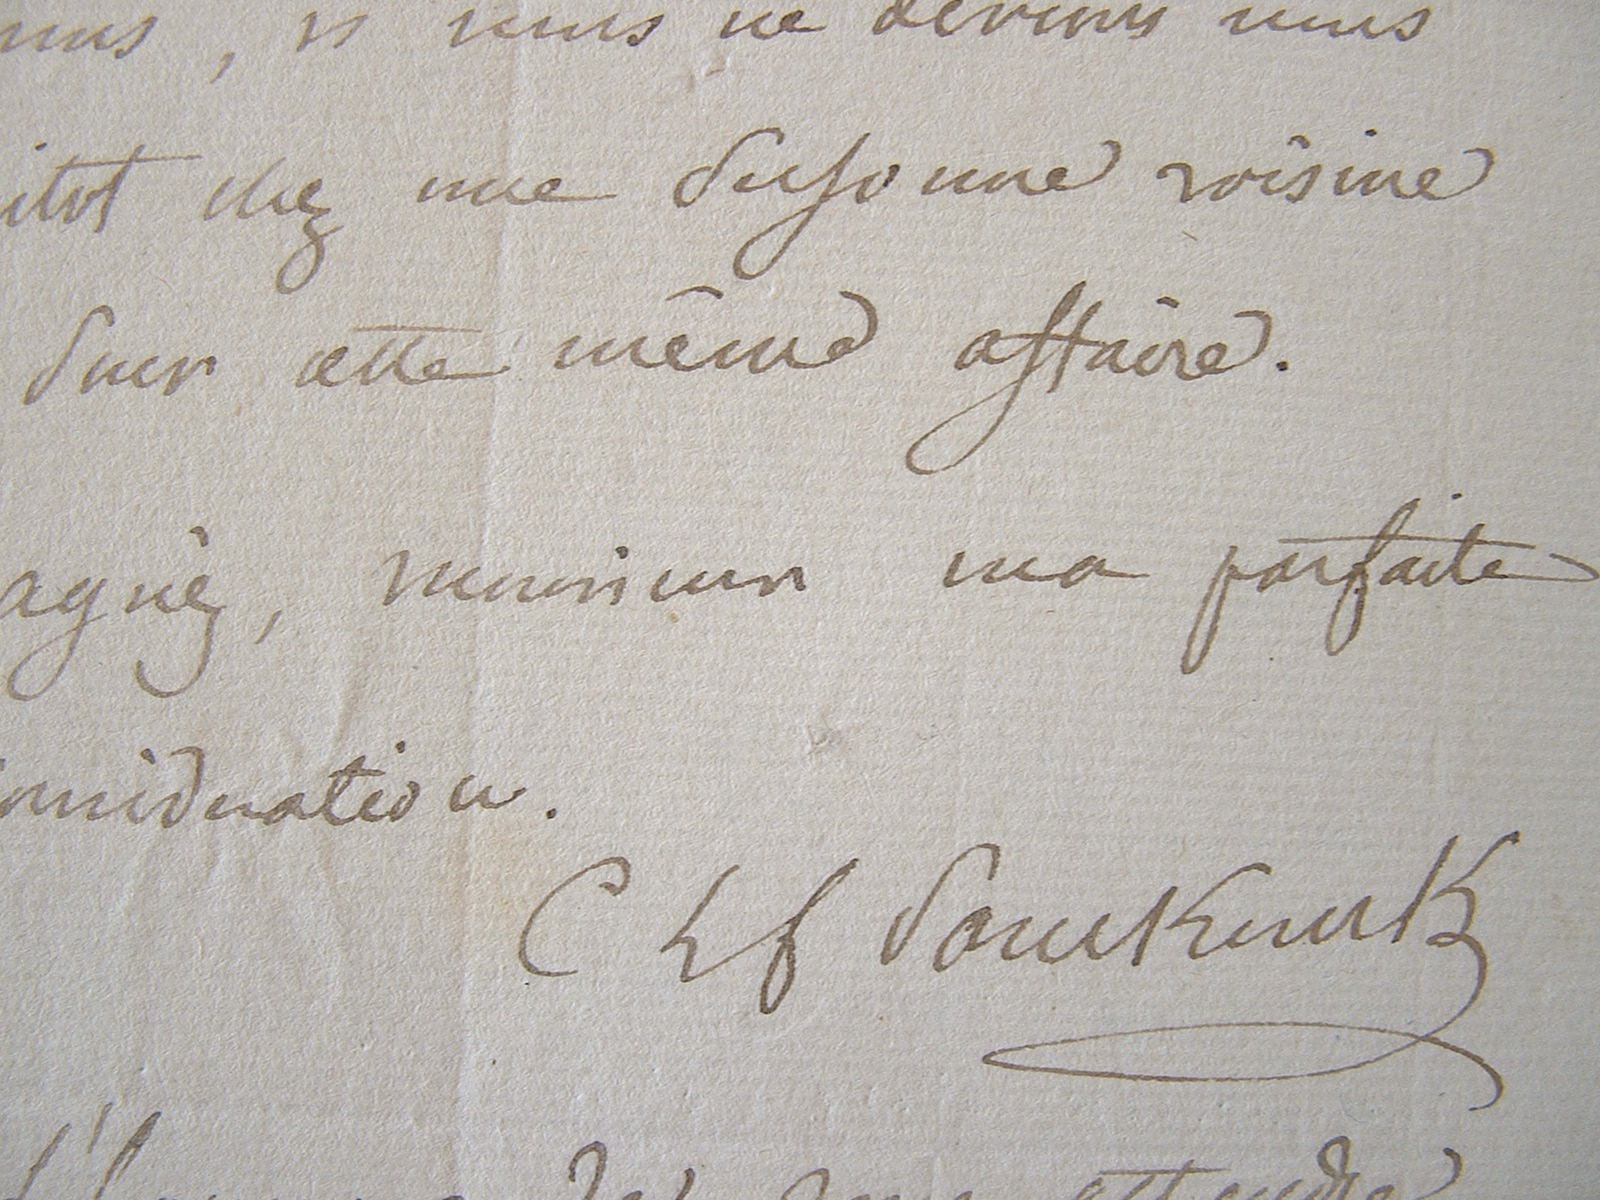 nous, si nous ne devions nous
itot chez une personne voisine
pour cette même affaire.
agréez, monsieur ma parfaite
considération.
C L f Panckoucke